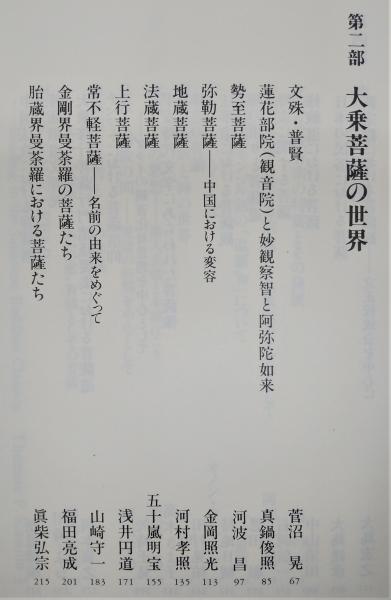 第二部 大乗菩薩の世界
文殊・普賢 菅沼 晃 67
蓮花部院(観音院)と妙観察智と阿弥陀如来 真鍋俊照 85
勢至菩薩 河波 昌 97
弥勒菩薩――中国における変容 金岡照光 113
地蔵菩薩 河村孝照 135
法蔵菩薩 五十嵐明宝 155
上行菩薩 浅井円道 171
常不軽菩薩――名前の由来をめぐって 山崎守一 183
金剛界曼荼羅の菩薩たち 福田亮成 201
胎蔵界曼荼羅における菩薩たち 眞柴弘宗 215